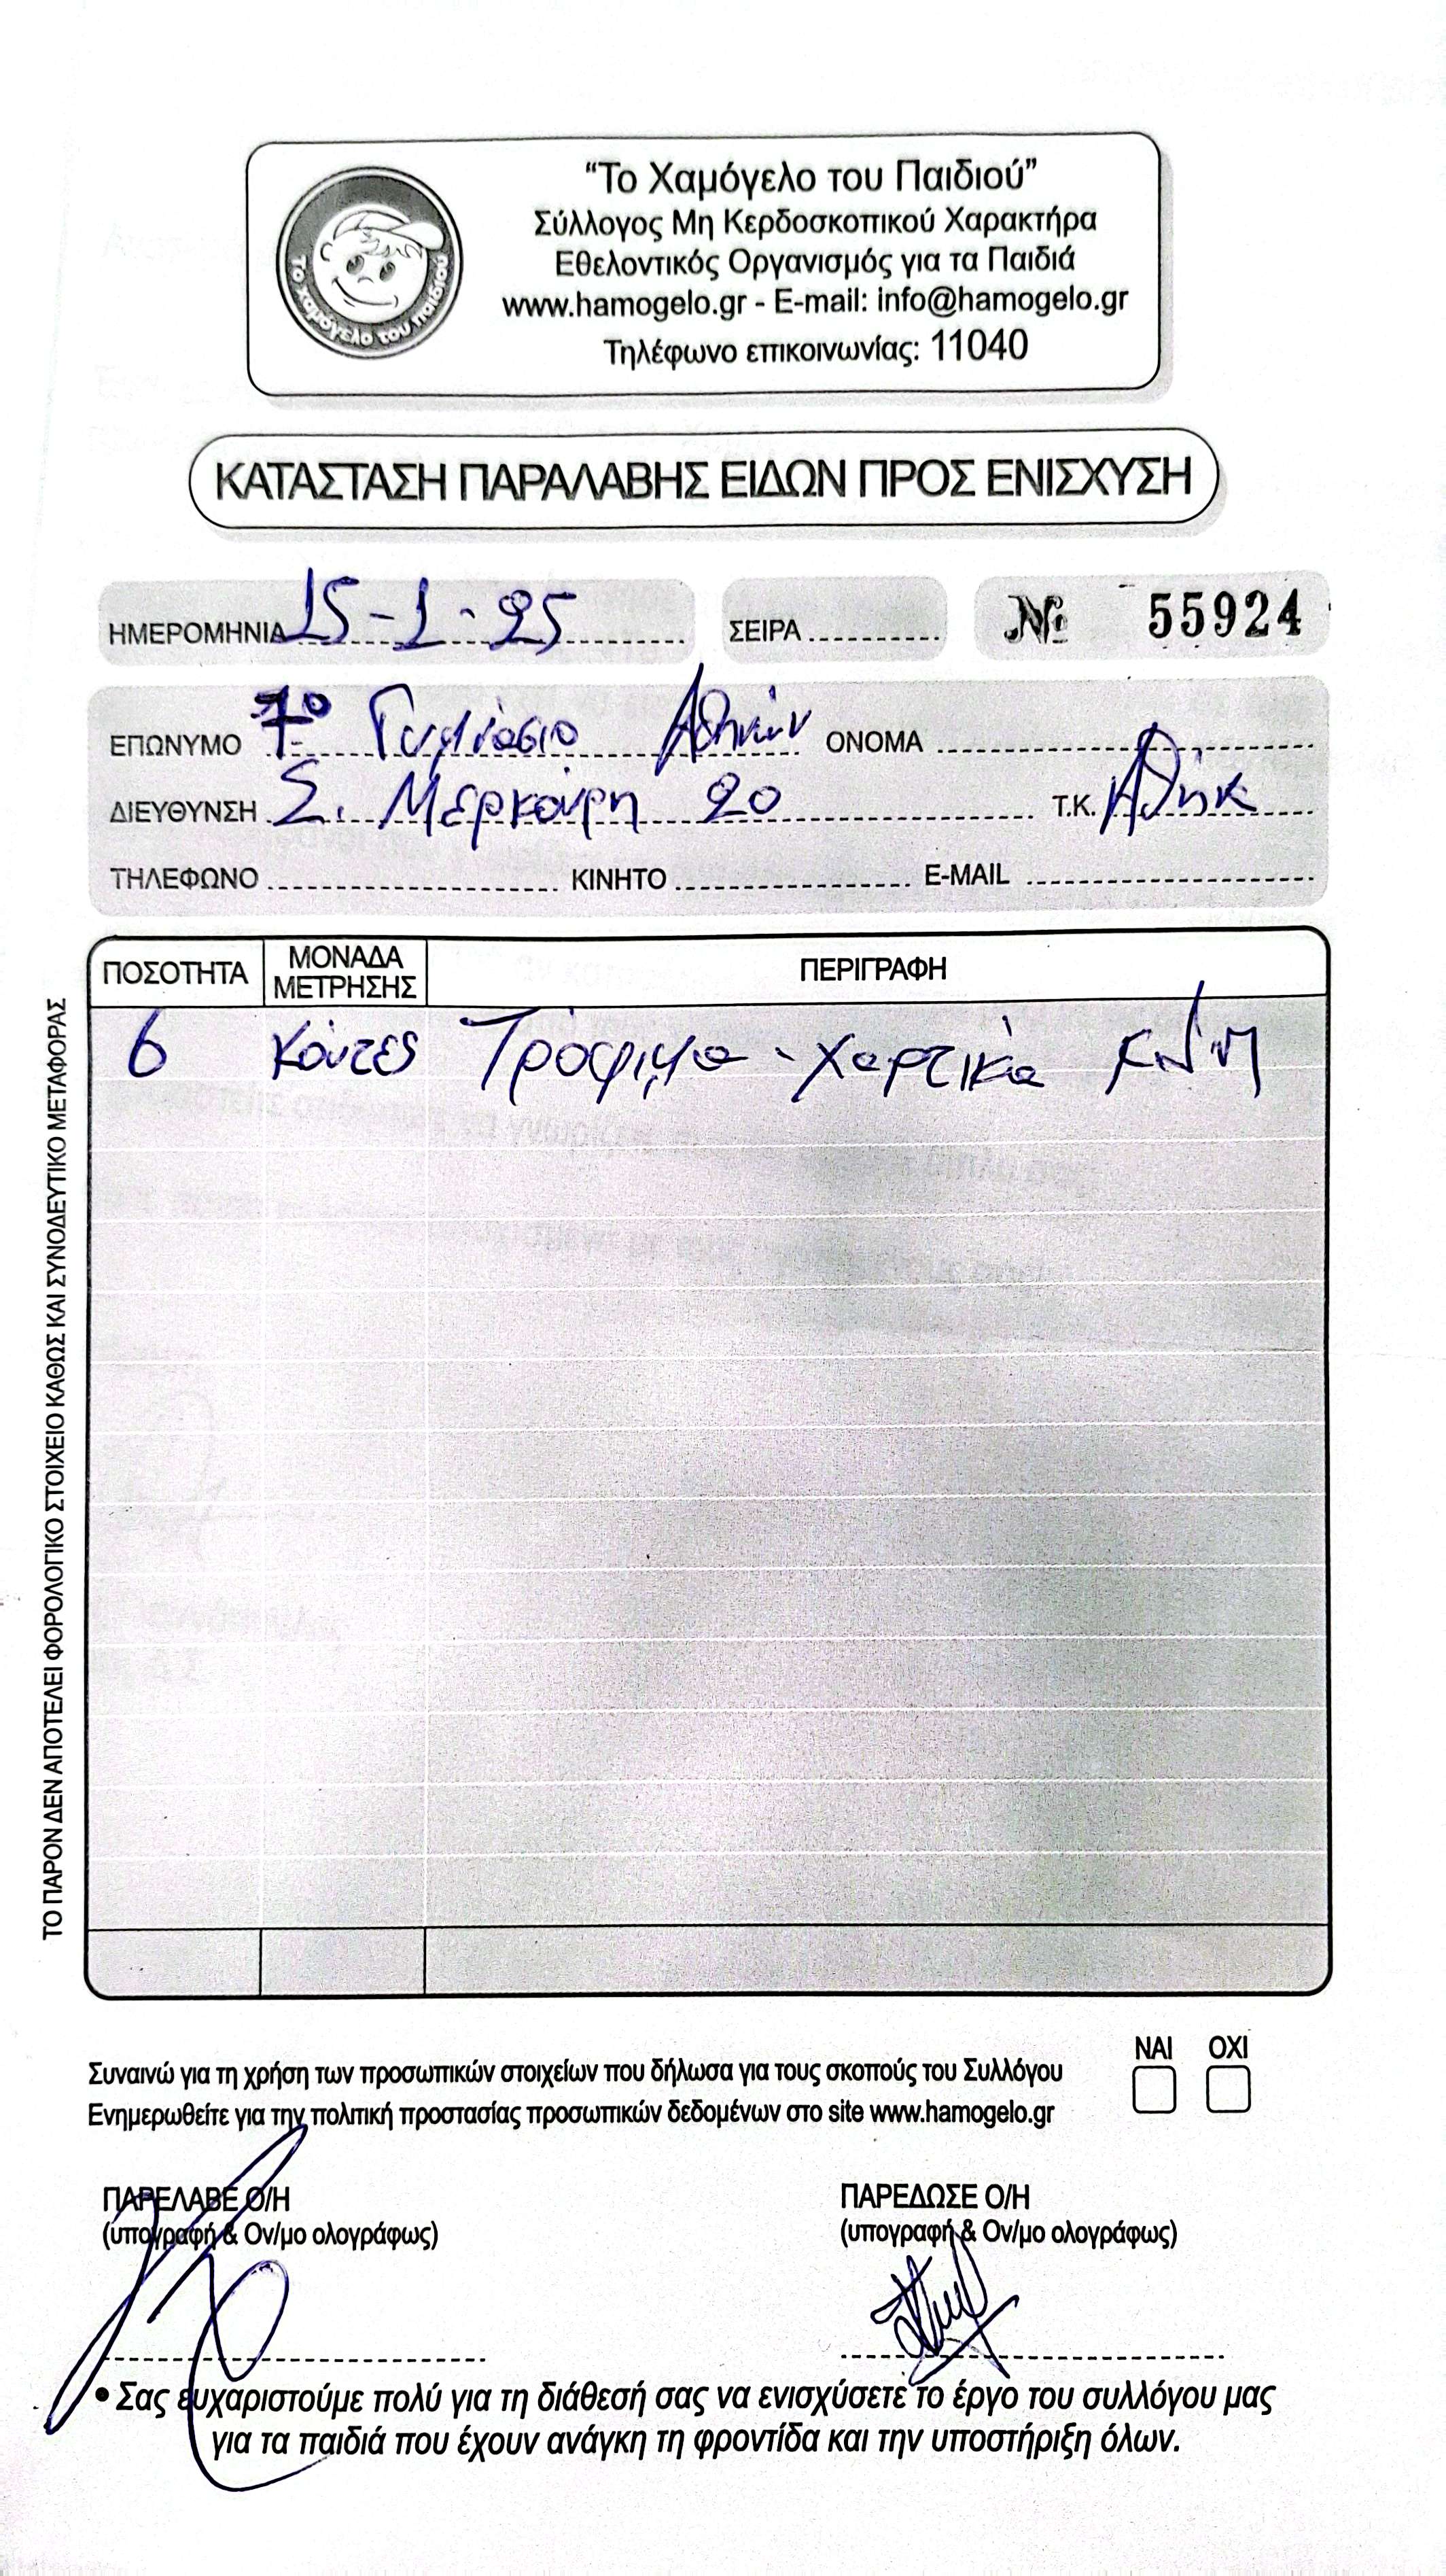 “Το Χαμόγελο του Παιδιού”
Σύλλογος Μη Κερδοσκοπικού Χαρακτήρα
Εθελοντικός Οργανισμός για τα Παιδιά
www.hamogelo.gr - E-mail: info@hamogelo.gr
Τηλέφωνο επικοινωνίας: 11040
Το χαμόγελο του παιδιού
ΚΑΤΑΣΤΑΣΗ ΠΑΡΑΛΑΒΗΣ ΕΙΔΩΝ ΠΡΟΣ ΕΝΙΣΧΥΣΗ
ΗΜΕΡΟΜΗΝΙΑ 15-1-25 ΣΕΙΡΑ № 55924
ΕΠΩΝΥΜΟ 7ο Γυμνάσιο Αθηνών ΟΝΟΜΑ
ΔΙΕΥΘΥΝΣΗ Σ. Μερκούρη 20 Τ.Κ. Αθήνα
ΤΗΛΕΦΩΝΟ ΚΙΝΗΤΟ E-MAIL
ΠΟΣΟΤΗΤΑ ΜΟΝΑΔΑ ΜΕΤΡΗΣΗΣ ΠΕΡΙΓΡΑΦΗ
6 Κούτες Τρόφιμα - χαρτικά
ΤΟ ΠΑΡΟΝ ΔΕΝ ΑΠΟΤΕΛΕΙ ΦΟΡΟΛΟΓΙΚΟ ΣΤΟΙΧΕΙΟ ΚΑΘΩΣ ΚΑΙ ΣΥΝΟΔΕΥΤΙΚΟ ΜΕΤΑΦΟΡΑΣ
ΝΑΙ ΟΧΙ
Συναινώ για τη χρήση των προσωπικών στοιχείων που δήλωσα για τους σκοπούς του Συλλόγου
Ενημερωθείτε για την πολιτική προστασίας προσωπικών δεδομένων στο site www.hamogelo.gr
ΠΑΡΕΛΑΒΕ Ο/Η ΠΑΡΕΔΩΣΕ Ο/Η
(υπογραφή & Ον/μο ολογράφως) (υπογραφή & Ον/μο ολογράφως)
• Σας ευχαριστούμε πολύ για τη διάθεσή σας να ενισχύσετε το έργο του συλλόγου μας
για τα παιδιά που έχουν ανάγκη τη φροντίδα και την υποστήριξη όλων.